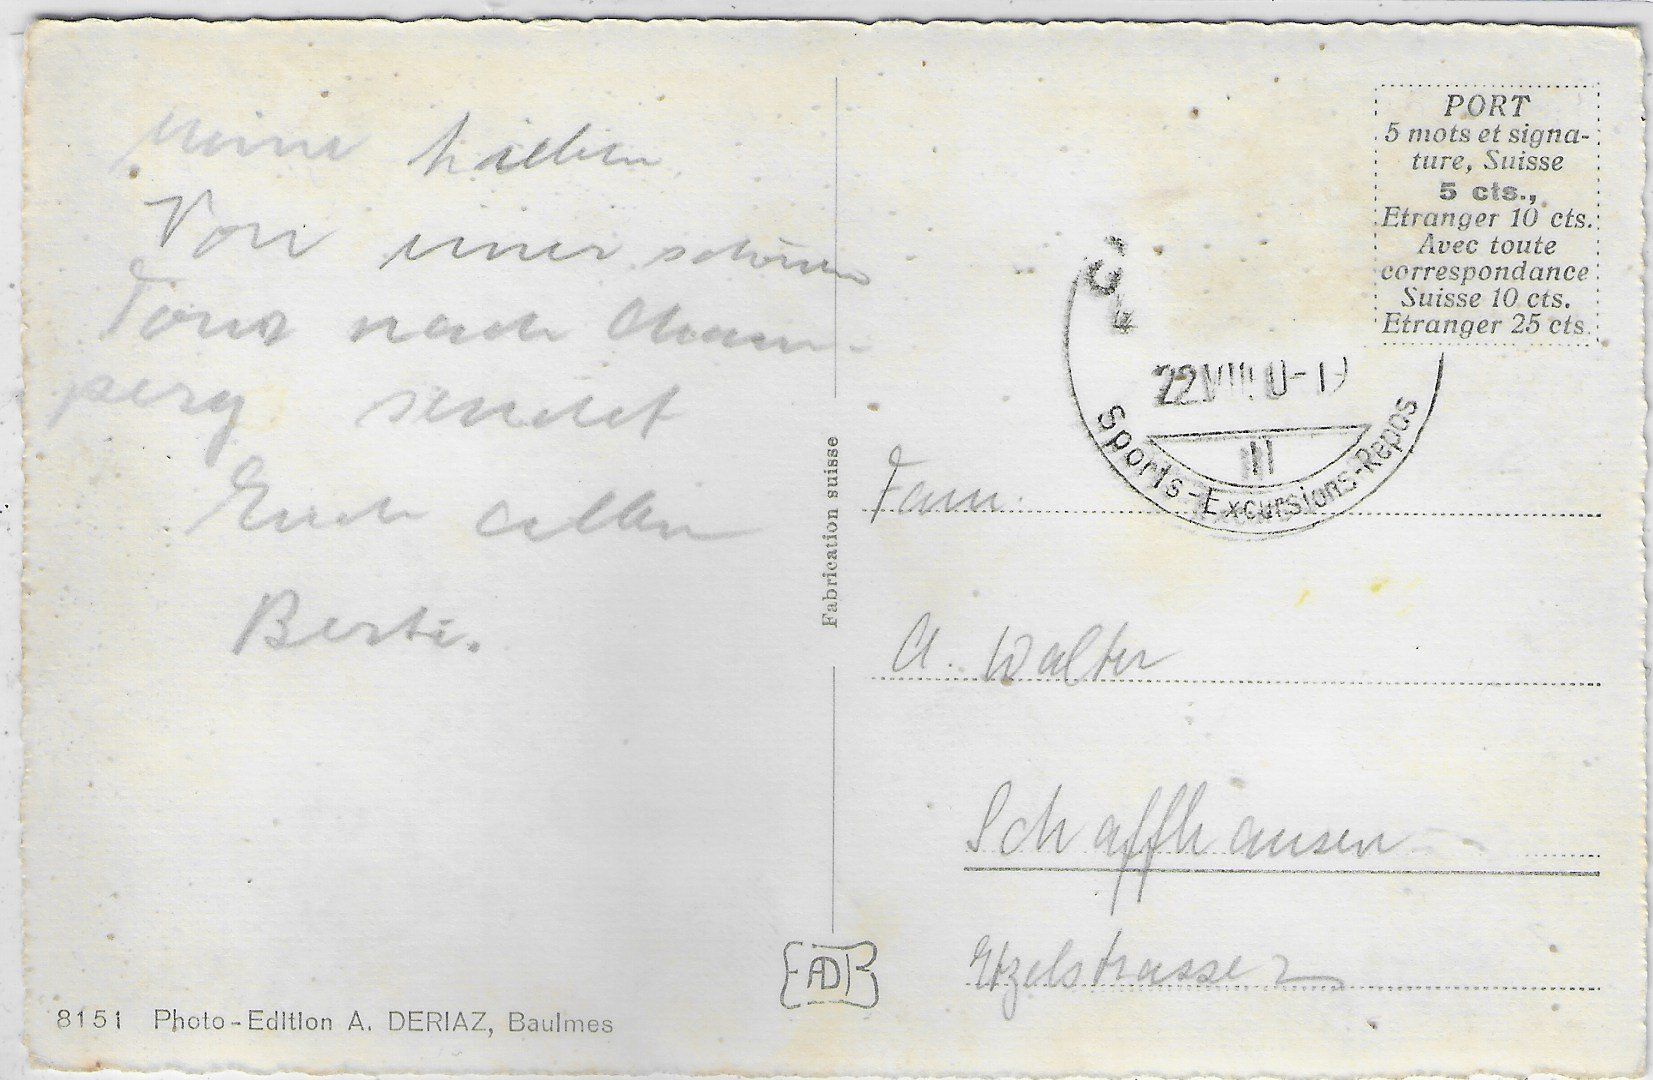 Meine Lieben
Von einer schönen
Tour nach Cham-
pery sendet
Euch allen
Berti.
8151 Photo-Edition A. DERIAZ, Baulmes
Fabrication suisse
PORT
5 mots et signa-
ture, Suisse
5 cts.,
Etranger 10 cts.
Avec toute
correspondance
Suisse 10 cts.
Etranger 25 cts.
22 VIII
Sports-Excursions-Repos
Fam.
A. Walter
Schaffhausen
Etzelstrasse 2